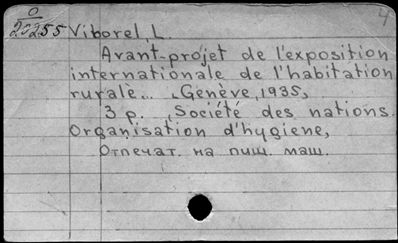 4
0
20255 Viborel, L.
Avant-projet de l'exposition
internationale de l'habitation
rurale... , Genève, 1935,
3 p. , Société des nations.
Organisation d'hygiene,
Отпечат. на пиш. маш.